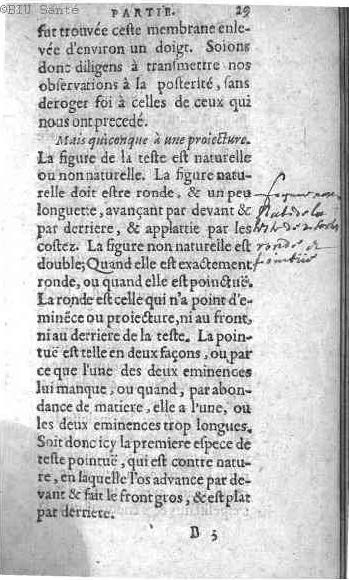 ©BIU Santé
PARTIE. 29
fut trouvée ceste membrane enle-
vée d'environ un doigt. Soions
donc diligens à transmettre nos
observations à la posterité, sans
deroger foi à celles de ceux qui
nous ont precedé.
Mais quiconque à une proiecture.
La figure de la teste est naturelle
ou non naturelle. La figure natu-
relle doit estre ronde, & un peu
longuette, avançant par devant &
par derriere, & applattie par les
costez. La figure non naturelle est
double; Quand elle est exactement
ronde, ou quand elle est poinctuë.
La ronde est celle qui n'a point d'e-
minẽce ou proiecture, ni au front,
ni au derriere de la teste. La poin-
tuë est telle en deux façons, ou par
ce que l'une des deux eminences
lui manque, ou quand, par abon-
dance de matiere, elle a l'une, ou
les deux eminences trop longues.
Soit donc icy la premiere espece de
teste pointuë, qui est contre natu-
re, en laquelle l'os advance par de-
vant & fait le front gros, & est plat
par derriere.
B 3